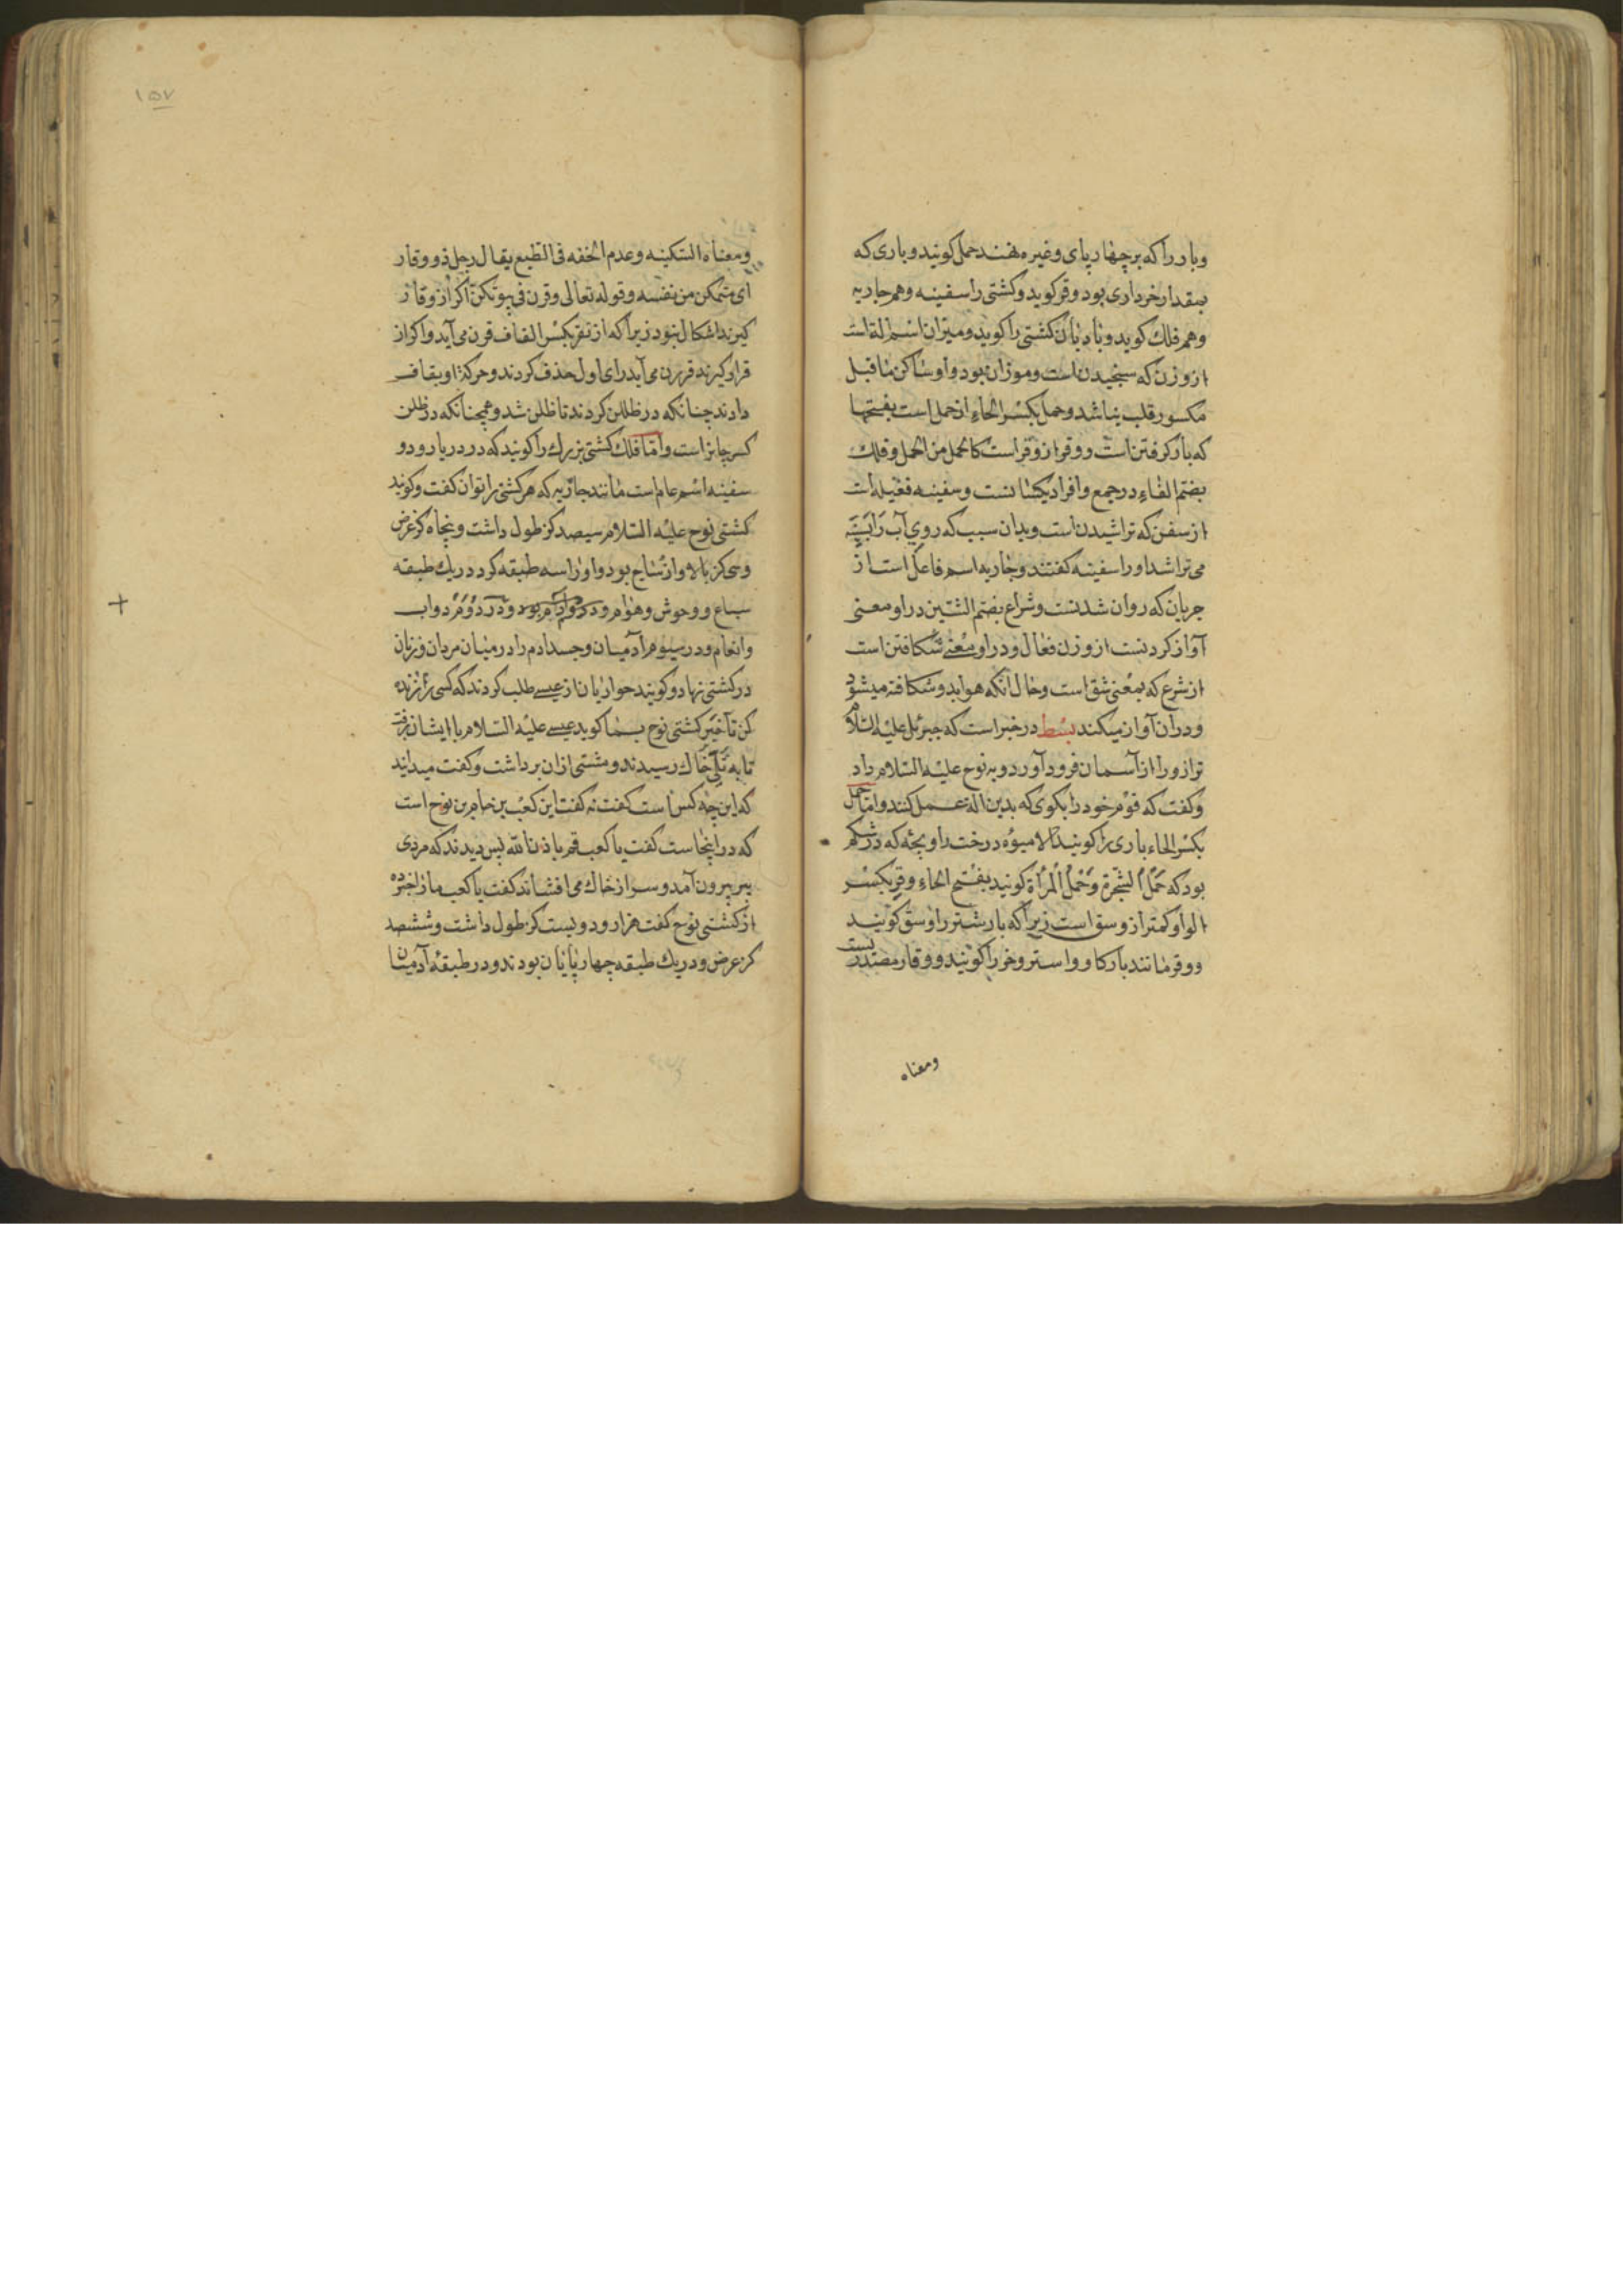 وبار را که بر چهار پای وغیره نهند حمل کویند وباری که
بمقدار خرواری بود وقر کوید وکشتی را سفینه وهم جاریه
وهم فلك کوید وبادبان کشتی را کوید ومیزان اسم الة است
از وزن که سنجیدن است وموزان بود واو ساکن ماقبل
مکسور قلب یا شد وحمل بکسر الحاء از حمل است بفتحها
که بار کرفتن است ووقر از وقر است کالحمل من الحمل وفلك
بضم الفاء در جمع وافراد یکسانست وسفینه فعیله است
از سفن که تراشیدن است وبدان سبب که روی آب را
می تراشد او را سفینه کفتند وجاریه اسم فاعل است از
جریان که روان شدنست وشراع بضم الشین در او معنی
آواز کردنست از وزن فعال ودر او معنی شکافتن است
از شرع که بمعنی شق است وحال آنکه هوا بدو شکافته میشود
ودران آواز میکند بسط در خبر است که جبرئل علیه السلام
ترازو را از آسمان فرود آورد وبه نوح علیه السلام داد
وکفت که قوم خود را بکوی که بدین الة عمل کنند واما حمل
بکسر الحاء باری را کویند میوه درخت را وبچه که در شکم
بود که حمل الشجرة وحمل المرأة کویند بفتح الحاء وقر بکسر
الواو کمتر از وسق است زیرا که بار شتر را وسق کویند
ووقر مانند بار کاو واستر وخر را کویند ووقار مصدر یست
ومعناه
۱۵۷
ومعناه السکینه وعدم الخفه فی الطبع یقال رجل ذو وقار
ای متمکن من نفسه وقوله تعالی وقرن فی بیوتکن اکر از وقار
کیرند اشکال نبود زیرا که از تقر بکسر القاف قرن می آید واکر از
قرار کیرند قررن می آید رای اول حذف کردند وحرکة او بقاف
دادند چنانکه در ظللن کردند تا ظلن شد وهمچنانکه در ظلن
کسر جایز است واما فلك کشتی بزرك را کویند که در دریا رود و
سفینه اسم عام است مانند جاریه که هر کشتی را توان کفت وکویند
کشتی نوح علیه السلام سیصد کز طول داشت وپنجاه کز عرض
وسی کز بالا واز ساج بود واو را سه طبقه کرد در یك طبقه
سباع ووحوش وهوام بود ودر دوم دواب
وانعام ودر سیوم آدمیان وجسد آدم را در میان مردان وزنان
در کشتی نهاد وکویند حواریان از عیسے طلب کردند که کسی را زنده
کن تا خبر کشتی نوح بما کوید عیسے علیه السلام با ایشان برفت
تا به تلی خاك رسیدند ومشتی ازان برداشت وکفت میدانید
که این چه کس است کفتند نه کفت این کعب بن حام بن نوح است
که در اینجاست کفت یا کعب قم باذن الله پس دیدند که مردی
پیر بیرون آمد وسر از خاك می افشاند کفت یا کعب ما را خبر ده
از کشتی نوح کفت هزار ودویست کز طول داشت وششصد
کز عرض ودر یك طبقه چهار پایان بودند ودر طبقه آدمیان